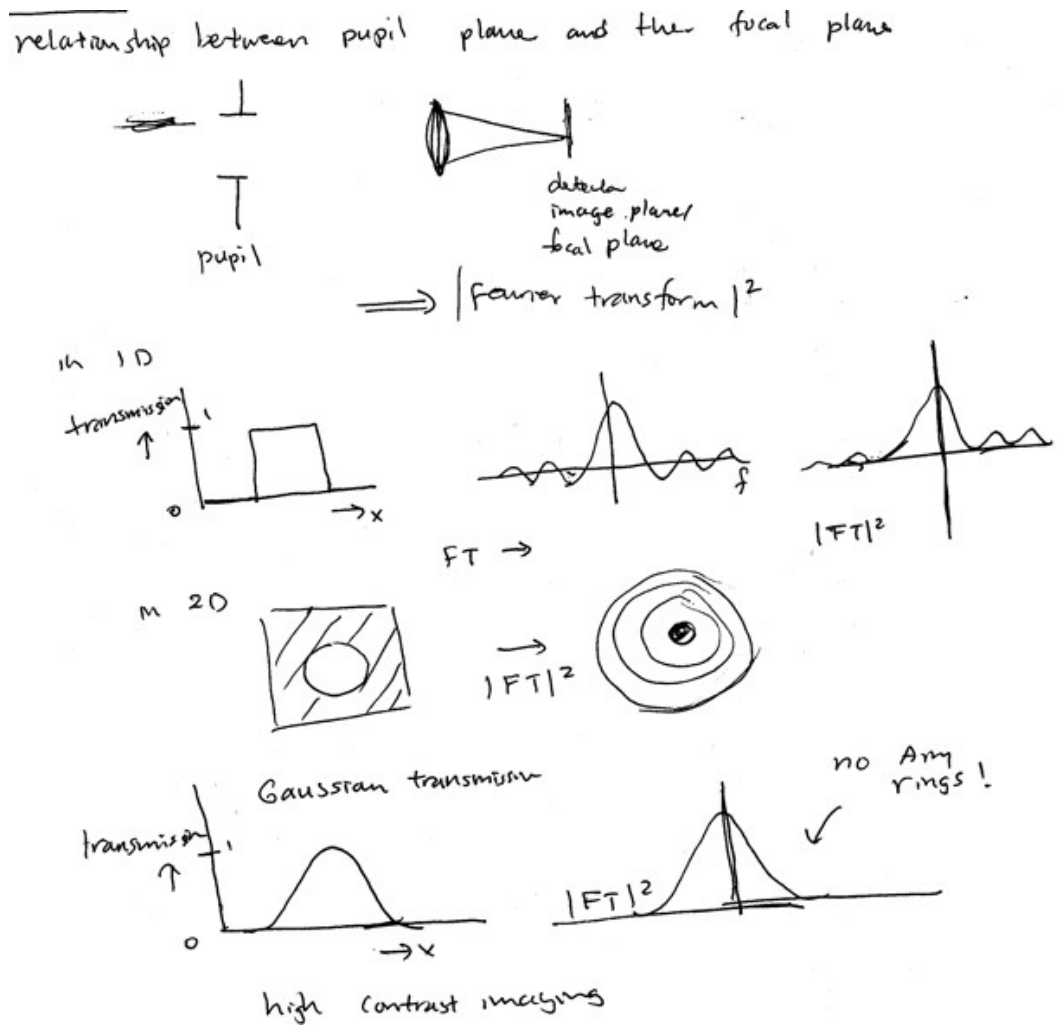 relationship between pupil plane and the focal plane
pupil
detector
image plane/
focal plane
⟹ |Fourier transform|²
in 1D
transmission
↑
1
0
→ x
f
FT →
|FT|²
in 2D
→
|FT|²
Gaussian transmission
no Airy
rings!
transmission
↑
1
0
→ x
|FT|²
high contrast imaging